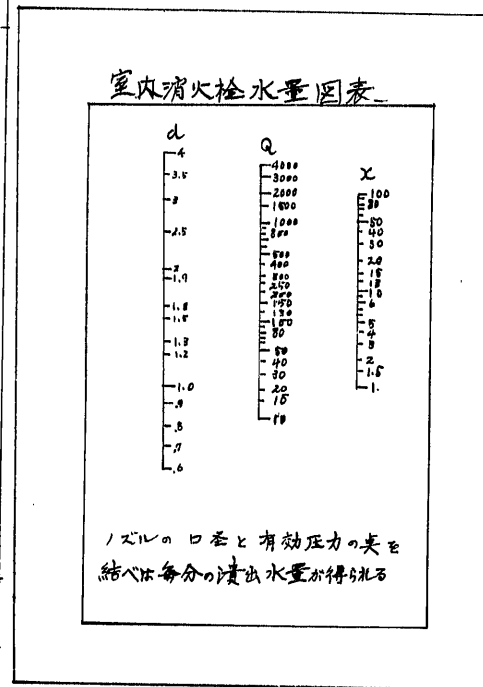 室内消火栓水量図表
d
4
3.5
3
2.5
2
1.9
1.5
1.3
1.2
1.0
.9
.8
.7
.6
Q
4000
3000
2000
1500
1000
500
400
300
250
200
150
100
80
50
40
30
20
15
10
x
100
80
50
40
30
20
15
10
5
4
3
2
1.5
1.
ノズルの口径と有効圧力の点を
結べば毎分の漬出水量が得られる